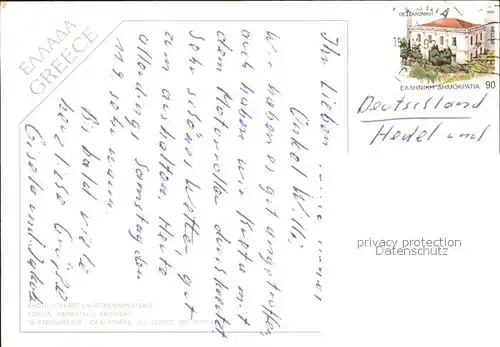 ΕΛΛΑΔΑ
GREECE
Ihr Lieben
Onkel Willi.
Wir haben es gut angetroffen,
auch haben wir Kreta mit
dem Motorroller durchquert
Sehr schönes Wetter, gut
zum aushalten. Heute
allerdings Samstag den
11.9. sehr warm.
Bis bald viele
herzliche Grüße
Gisela und
ΘΕΣΣΑΛΟΝΙΚΗ
ΕΛΛΗΝΙΚΗ ΔΗΜΟΚΡΑΤΙΑ
90
Deutschland
Hedel und
privacy protection
Datenschutz